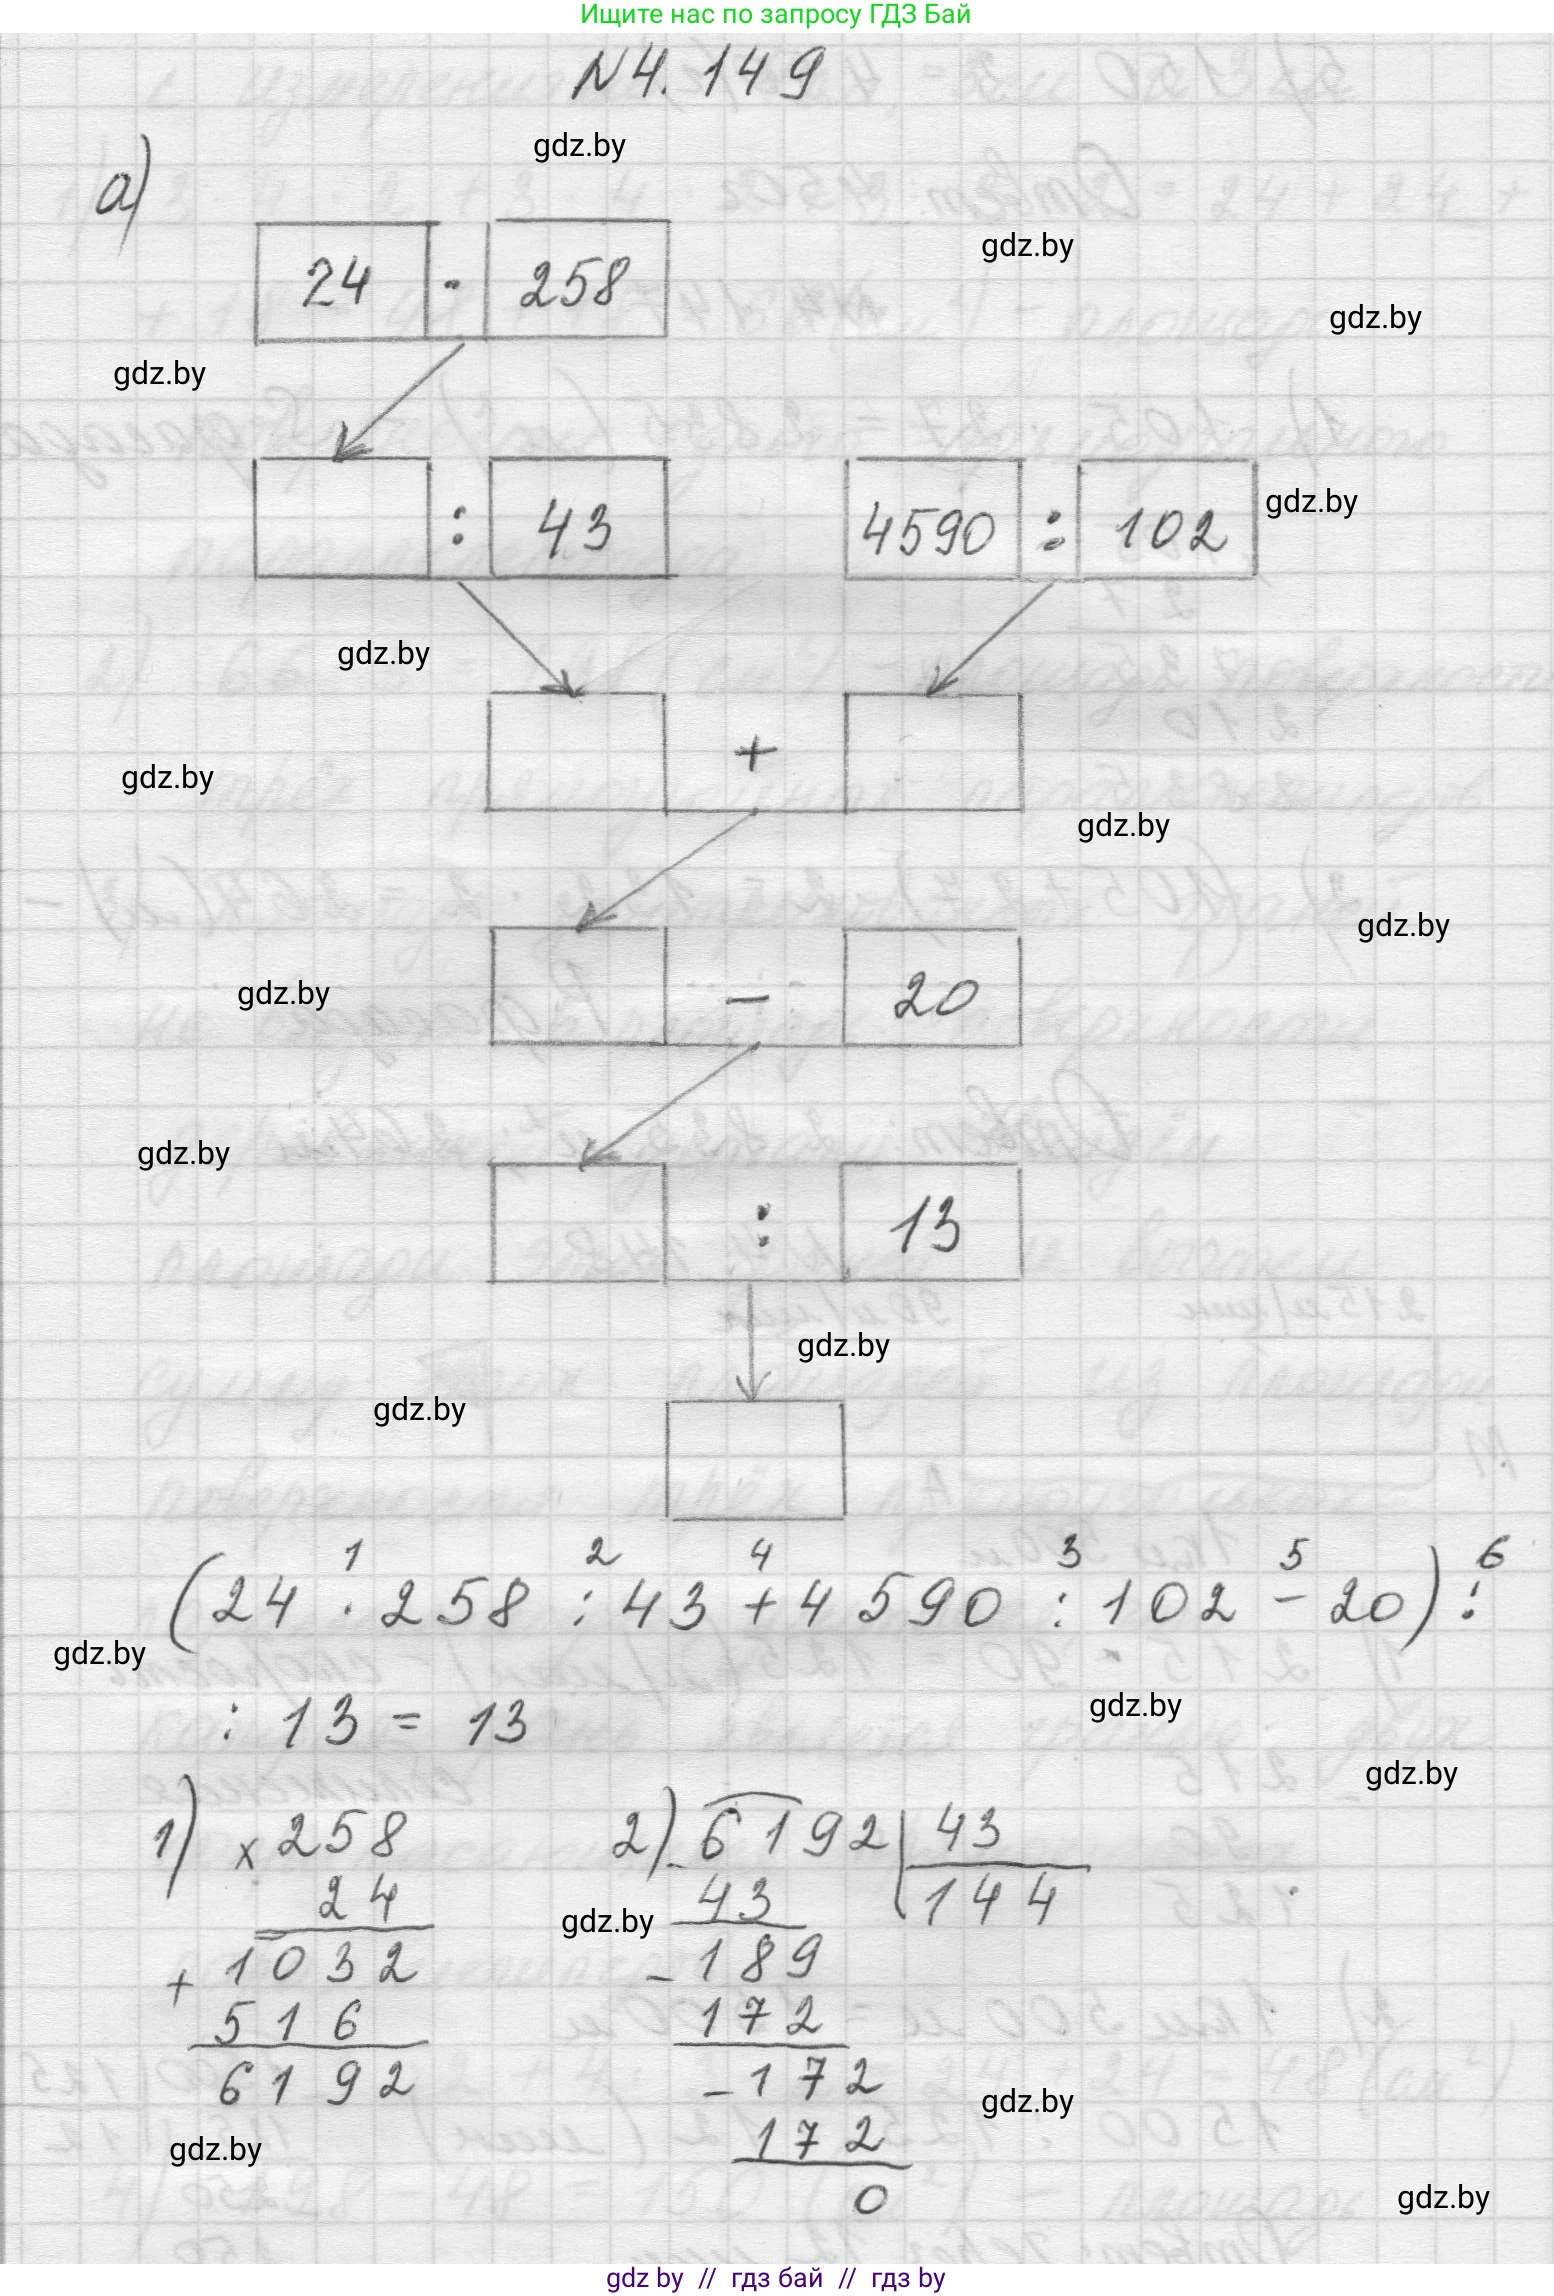 Ищите нас по запросу ГДЗ Бай
N4.149
gdz.by
а)
gdz.by
24 · 258
gdz.by
gdz.by
: 43 4590 : 102
gdz.by
gdz.by
+
gdz.by
gdz.by
gdz.by
- 20
gdz.by
gdz.by
: 13
gdz.by
gdz.by
1 2 4 3 5 6
(24 · 258 : 43 + 4590 : 102 - 20) :
gdz.by
: 13 = 13
gdz.by
gdz.by
1) × 258 2) - 6192 43
24 43 144
gdz.by
+ 1032 - 189
516 172
6192 - 172
gdz.by
172
gdz.by
0
gdz.by
gdz by // гдз бай // гдз by